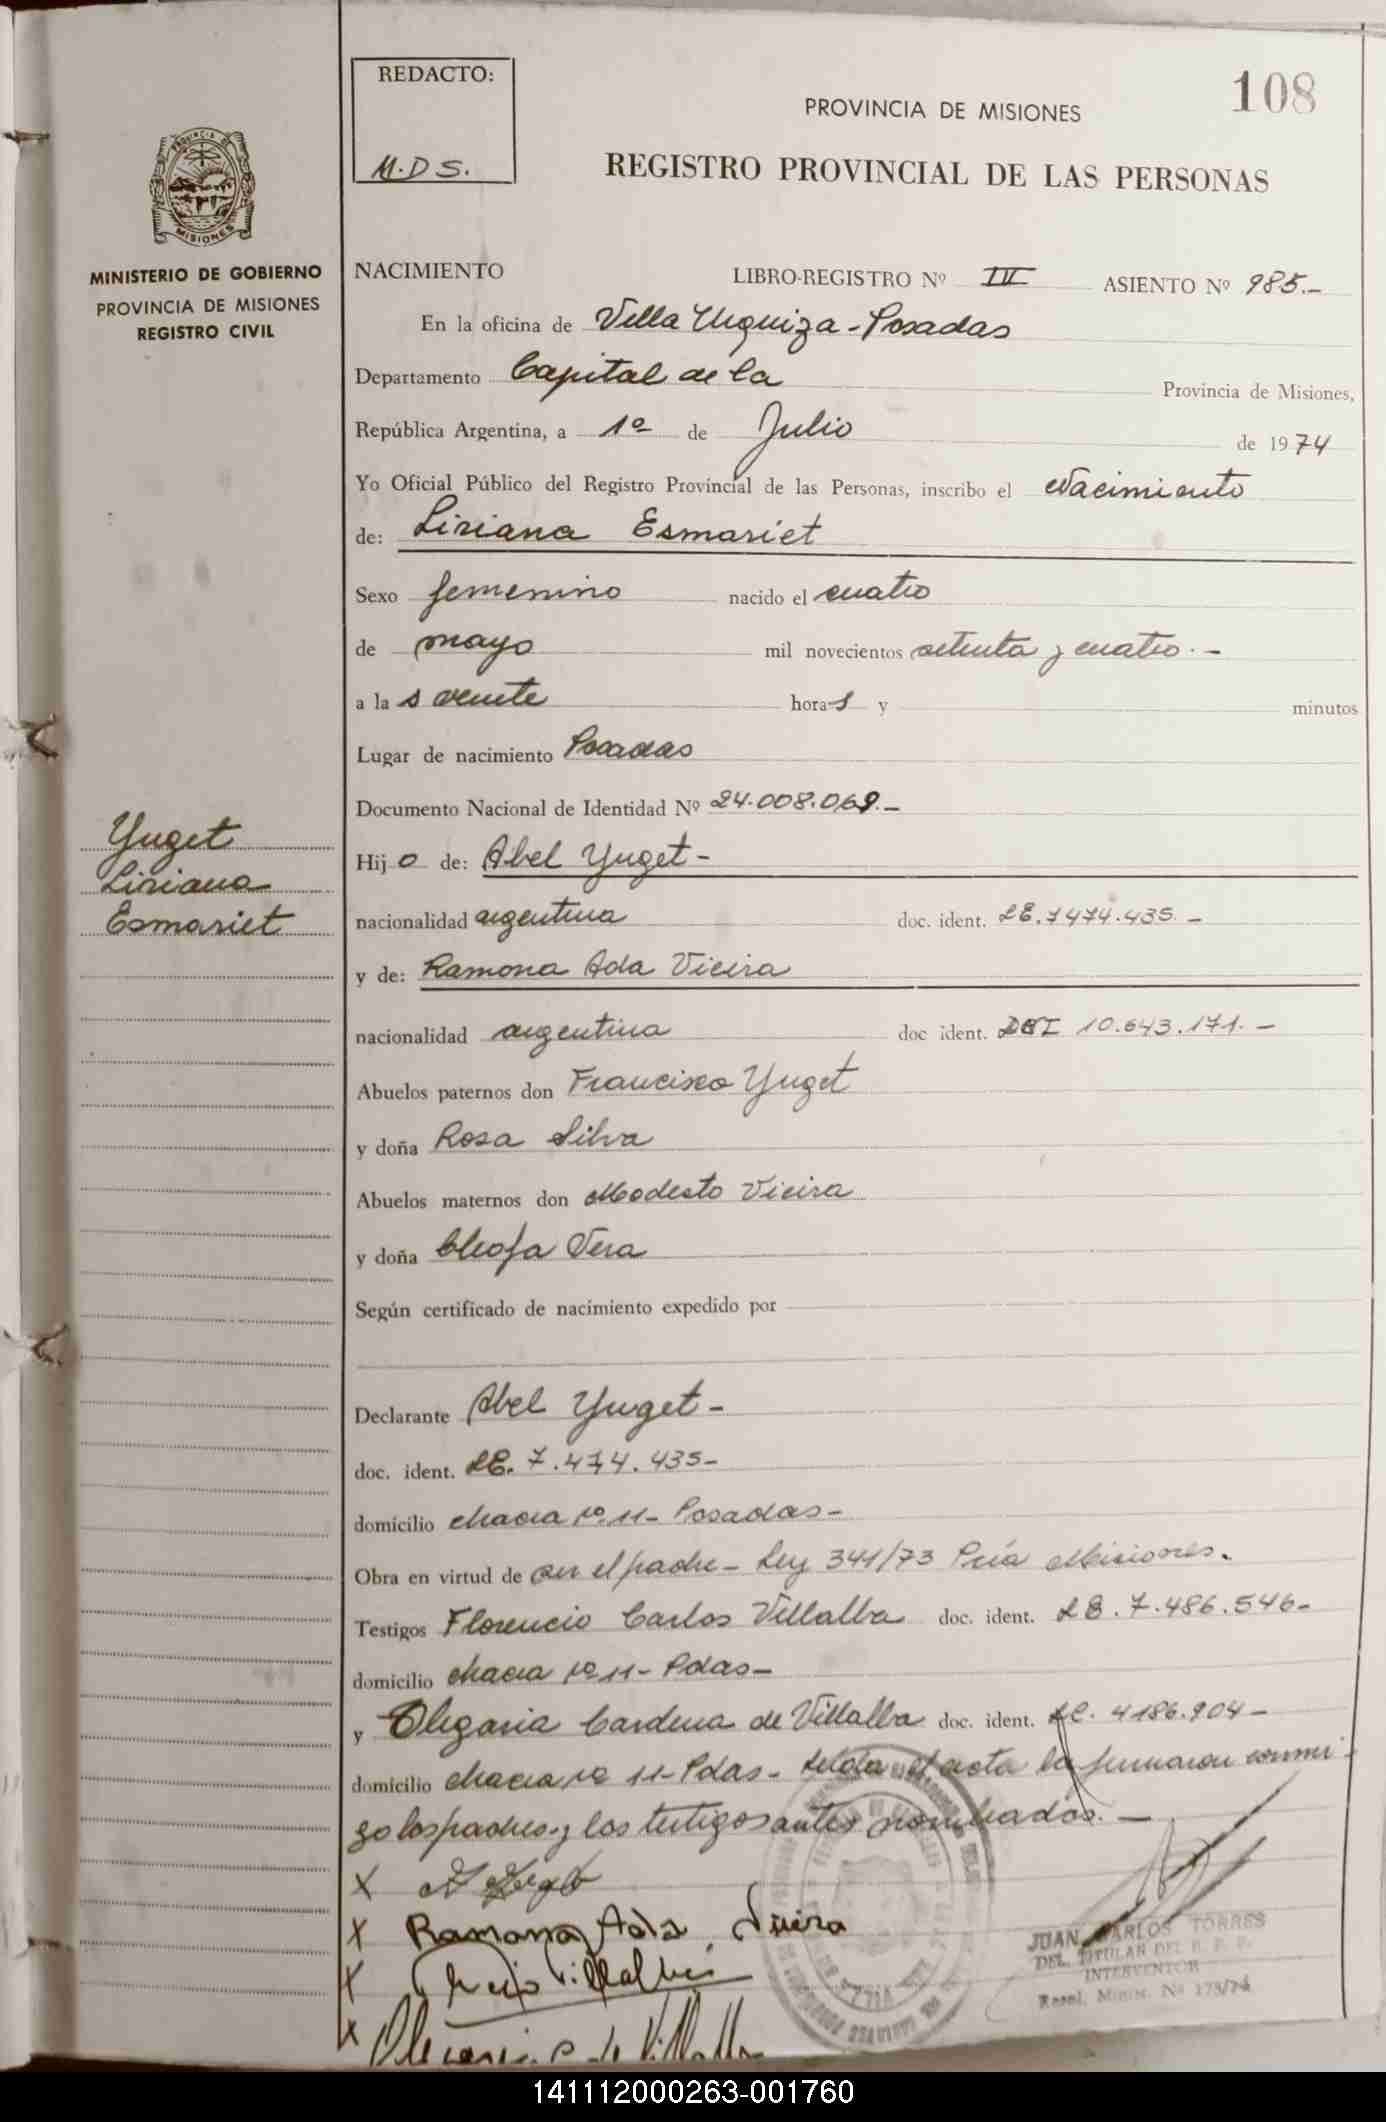 REDACTO:
M.D S.
108
PROVINCIA DE MISIONES
REGISTRO PROVINCIAL DE LAS PERSONAS
MISIONES
MINISTERIO DE GOBIERNO
PROVINCIA DE MISIONES
REGISTRO CIVIL
NACIMIENTO LIBRO-REGISTRO Nº III ASIENTO Nº 985.-
En la oficina de Villa Urquiza - Posadas
Departamento Capital de la Provincia de Misiones,
República Argentina, a 1º de Julio de 1974
Yo Oficial Público del Registro Provincial de las Personas, inscribo el Nacimiento
de: Liriana Esmariet
Sexo femenino nacido el cuatro
de mayo mil novecientos setenta y cuatro.-
a la s veinte hora s y minutos
Lugar de nacimiento Posadas
Documento Nacional de Identidad Nº 24.008.069.-
Yuget
Liriana
Esmariet
Hij o de: Abel Yuget -
nacionalidad argentina doc. ident. LE. 7474.435.-
y de: Ramona Ada Vieira
nacionalidad argentina doc ident. DNI 10.643.171.-
Abuelos paternos don Francisco Yuget
y doña Rosa Silva
Abuelos maternos don Modesto Vieira
y doña Cleofa Vera
Según certificado de nacimiento expedido por
Declarante Abel Yuget -
doc. ident. LE. 7.474.435-
domicilio chacra nº 11- Posadas-
Obra en virtud de ser el padre - Ley 341/73 Pcia Misiones.
Testigos Florencio Carlos Villalba doc. ident. LE. 7.486.546-
domicilio chacra nº 11- Pdas-
y Olegaria Cardena de Villalba doc. ident. LC. 4186.904-
domicilio chacra nº 11- Pdas- Leída el acta la firmaron conmi-
go los padres y los testigos antes nombrados.-
X
X Ramona Ada Vieira
X Villalba
X de Villalba
JUAN CARLOS TORRES
DEL. TITULAR DEL R. P. P.
INTERVENTOR
Resol. Minis. Nº 175/74
141112000263-001760